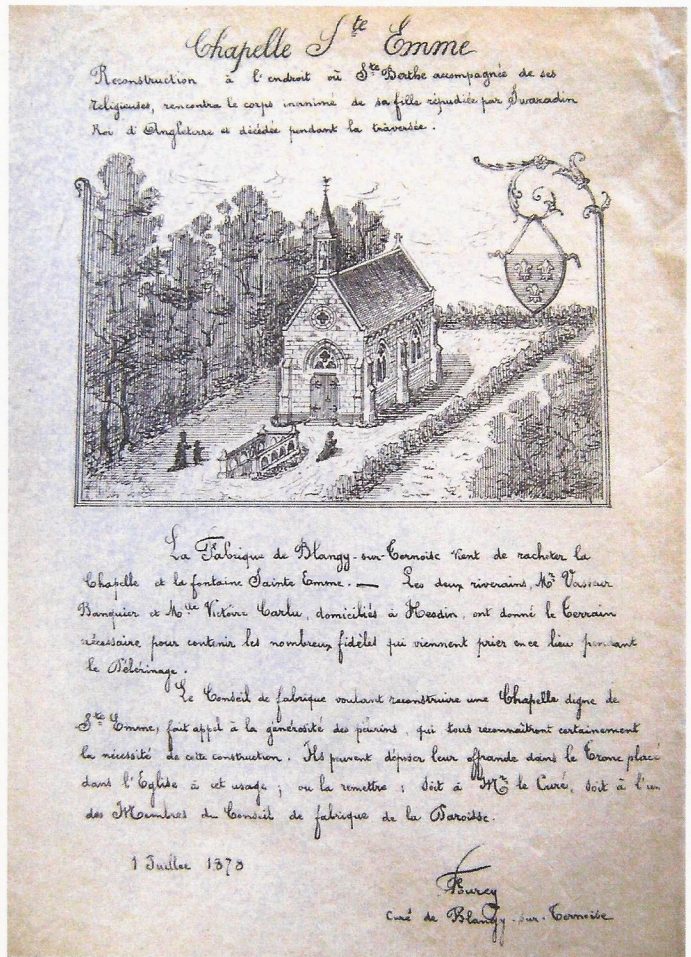 Chapelle Ste Emme
Reconstruction à l'endroit où Ste Berthe accompagnée de ses
religieuses, rencontra le corps inanimé de sa fille répudiée par Swaradin
Roi d'Angleterre et décédée pendant la traversée.
La Fabrique de Blangy-sur-Ternoise vient de racheter la
Chapelle et la fontaine Sainte Emme. — Les deux riverains, Mr Vasseur
Banquier et Mlle Victoire Carlu, domiciliés à Hesdin, ont donné le terrain
nécessaire pour contenir les nombreux fidèles qui viennent prier en ce lieu pendant
le Pélérinage.
Le Conseil de fabrique voulant reconstruire une Chapelle digne de
Ste Emme, fait appel à la générosité des pélerins, qui tous reconnaîtront certainement
la nécessité de cette construction. Ils peuvent déposer leur offrande dans le Tronc placé
dans l'Eglise à cet usage ; ou la remettre ; soit à Mr le Curé, soit à l'un
des Membres du Conseil de fabrique de la Paroisse.
1 Juillet 1878
Furcy
Curé de Blangy-sur-Ternoise